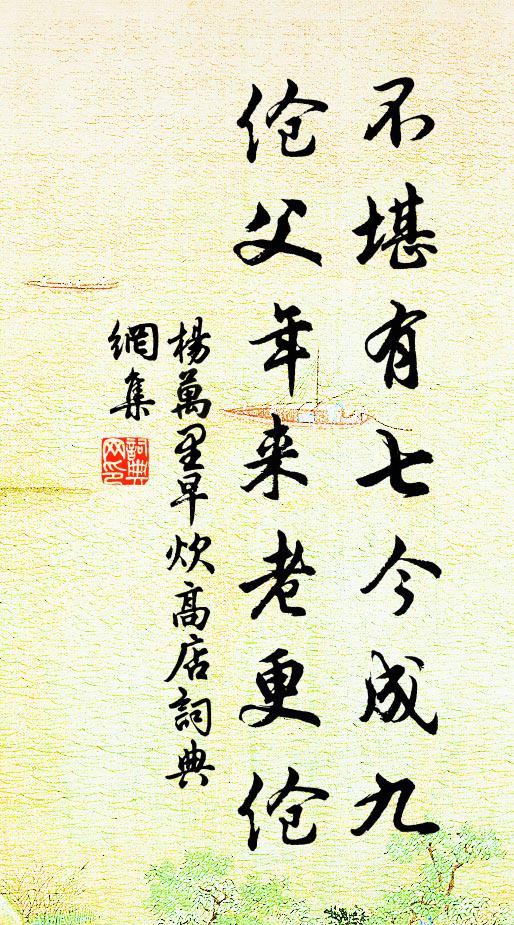 不堪有七今成九
伧父年来老更伧
楊萬里早炊高店詞典
網集
詞典
网印